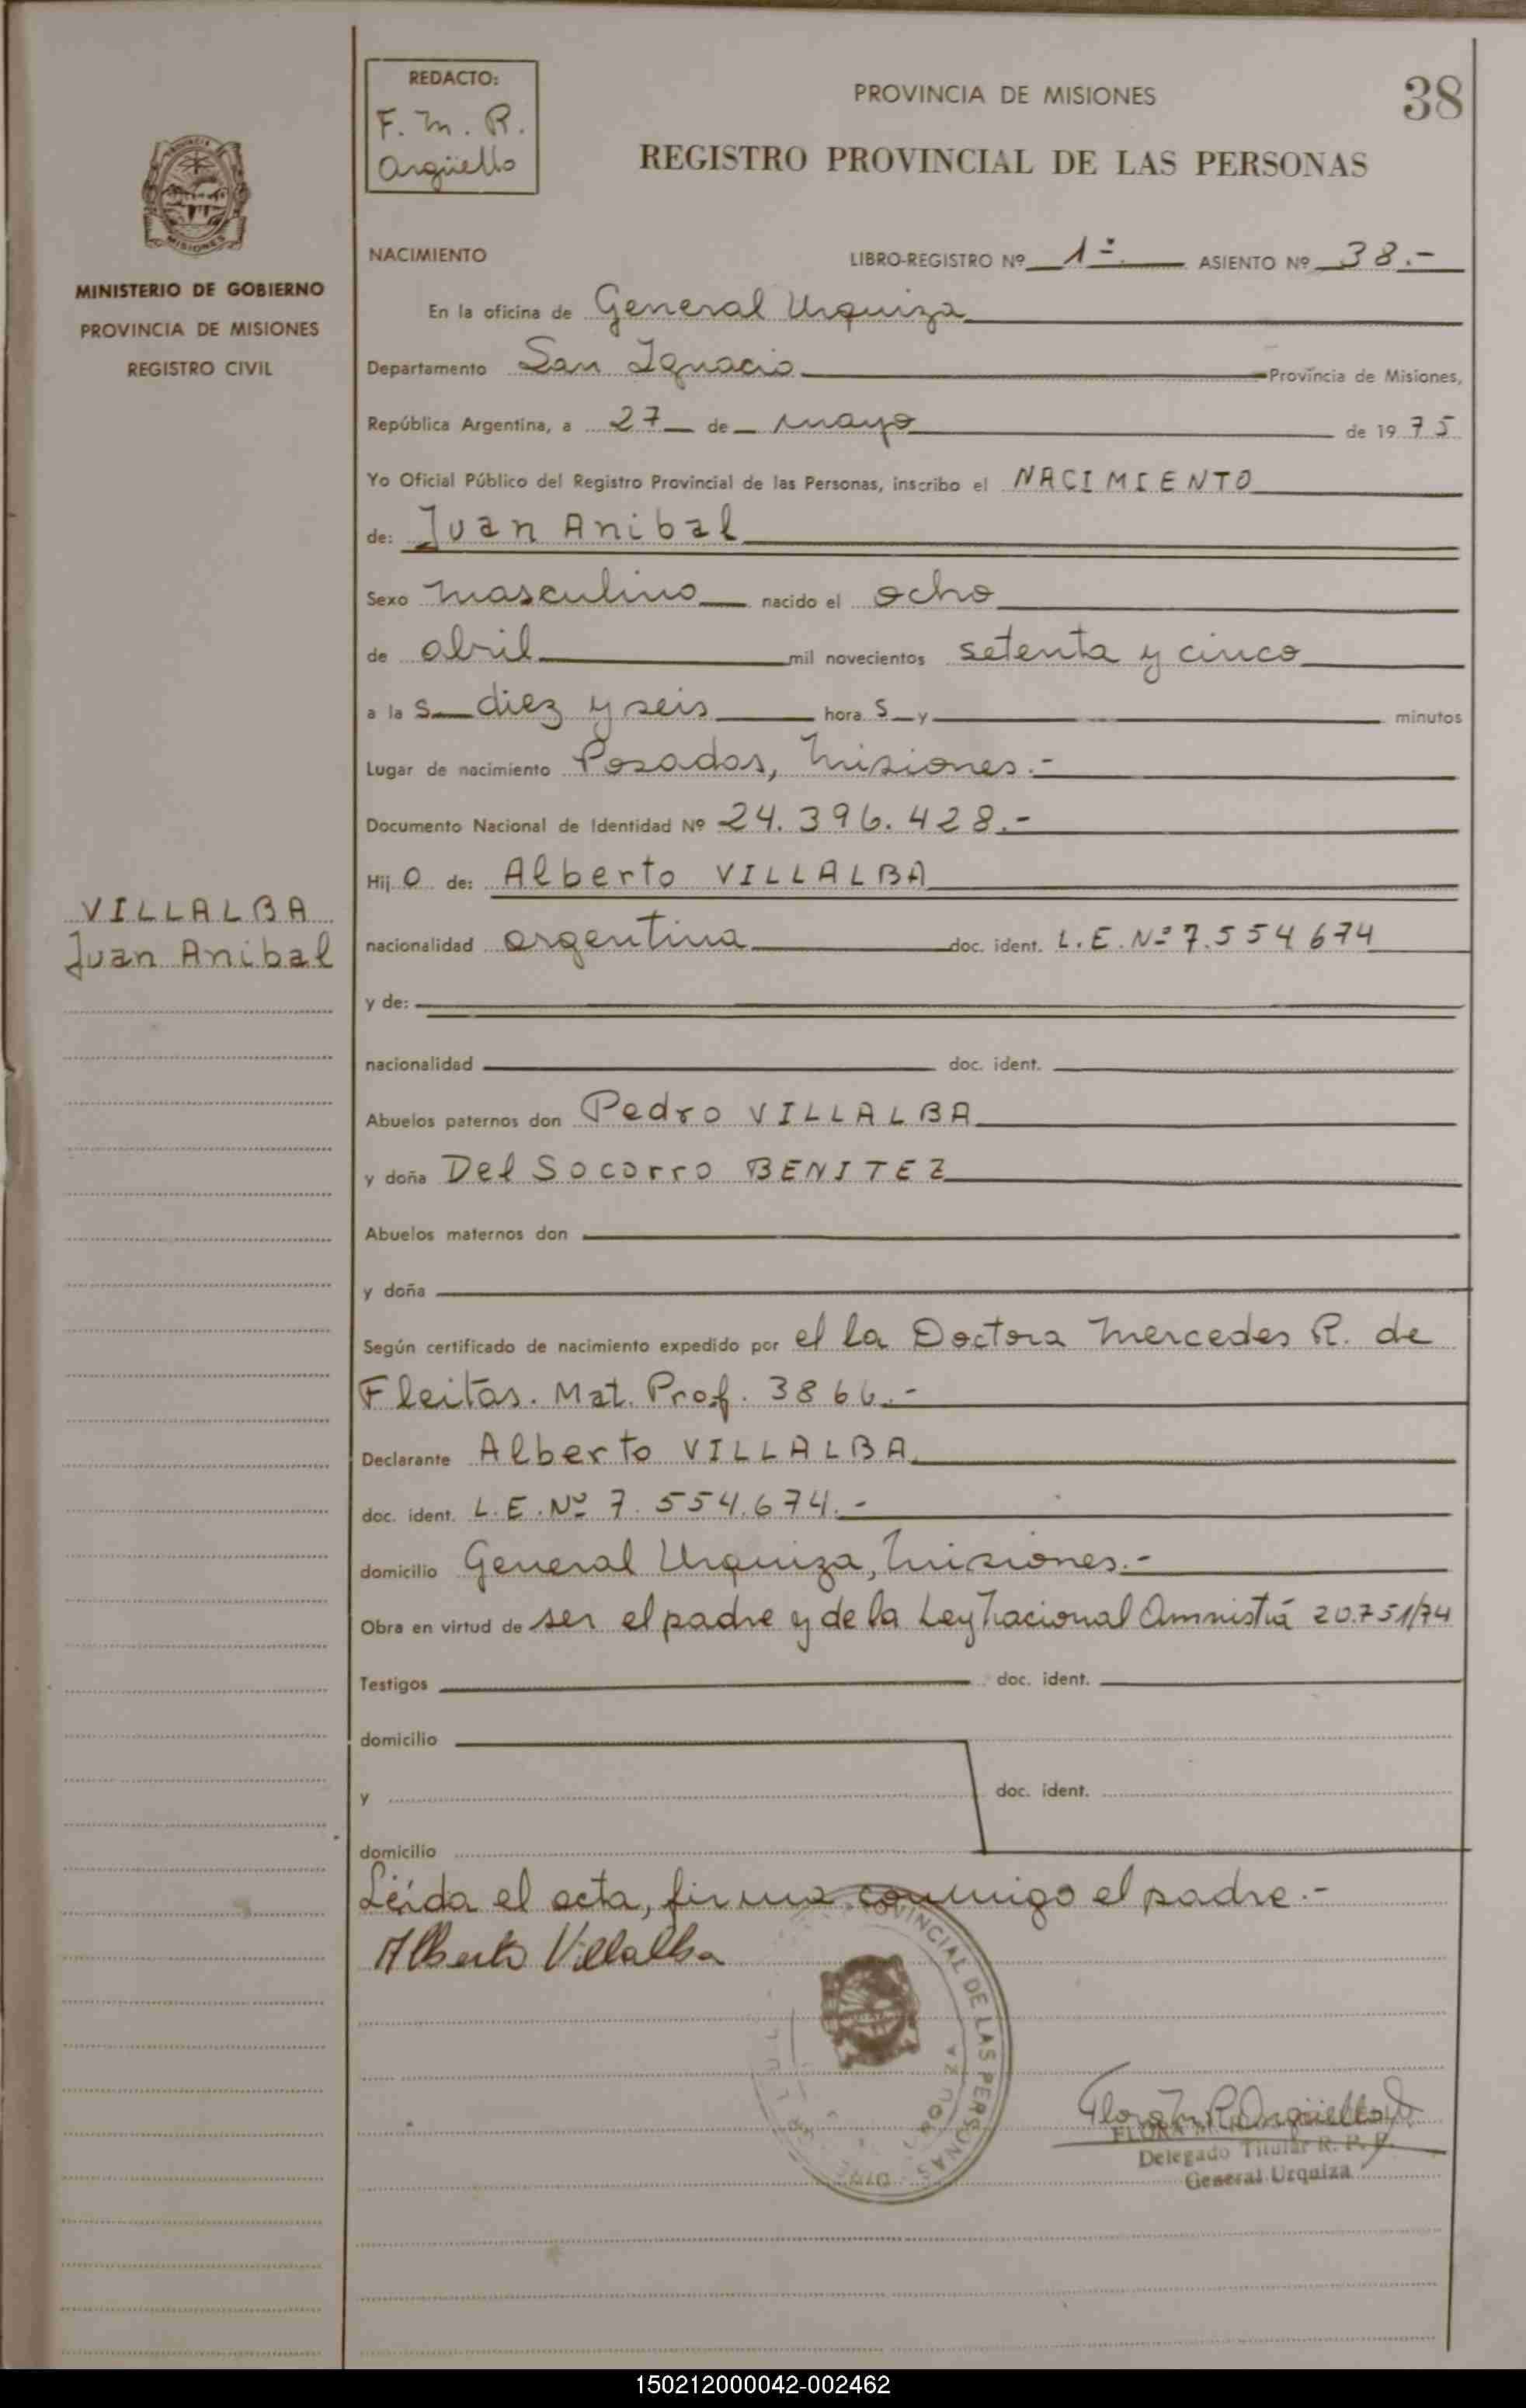 REDACTO:
F. M. R.
Argüello
PROVINCIA DE MISIONES
38
REGISTRO PROVINCIAL DE LAS PERSONAS
MISIONES
MINISTERIO DE GOBIERNO
PROVINCIA DE MISIONES
REGISTRO CIVIL
NACIMIENTO
LIBRO-REGISTRO Nº 1º. ASIENTO Nº 38.-
En la oficina de General Urquiza
Departamento San Ignacio Provincia de Misiones,
República Argentina, a 27 de mayo de 1975
Yo Oficial Público del Registro Provincial de las Personas, inscribo el NACIMIENTO
de: Juan Anibal
Sexo masculino nacido el ocho
de abril mil novecientos setenta y cinco
a la s diez y seis hora s y minutos
Lugar de nacimiento Posadas, Misiones.-
Documento Nacional de Identidad Nº 24.396.428.-
Hij o de: Alberto VILLALBA
VILLALBA
Juan Anibal
nacionalidad argentina doc. ident. L.E. Nº 7.554674
y de:
nacionalidad doc. ident.
Abuelos paternos don Pedro VILLALBA
y doña Del Socorro BENITEZ
Abuelos maternos don
y doña
Según certificado de nacimiento expedido por el la Doctora Mercedes R. de
Fleitas. Mat. Prof. 3866.-
Declarante Alberto VILLALBA
doc. ident. L.E. Nº 7.554.674.-
domicilio General Urquiza, Misiones.-
Obra en virtud de ser el padre y de la Ley Nacional Amnistía 20.751/74
Testigos doc. ident.
domicilio
y doc. ident.
domicilio
Leída el acta, firma conmigo el padre.-
Alberto Villalba
PROVINCIAL DE LAS PERSONAS
Flora M. R. Argüello
FLORA
Delegado Titular R. P. P.
General Urquiza
150212000042-002462